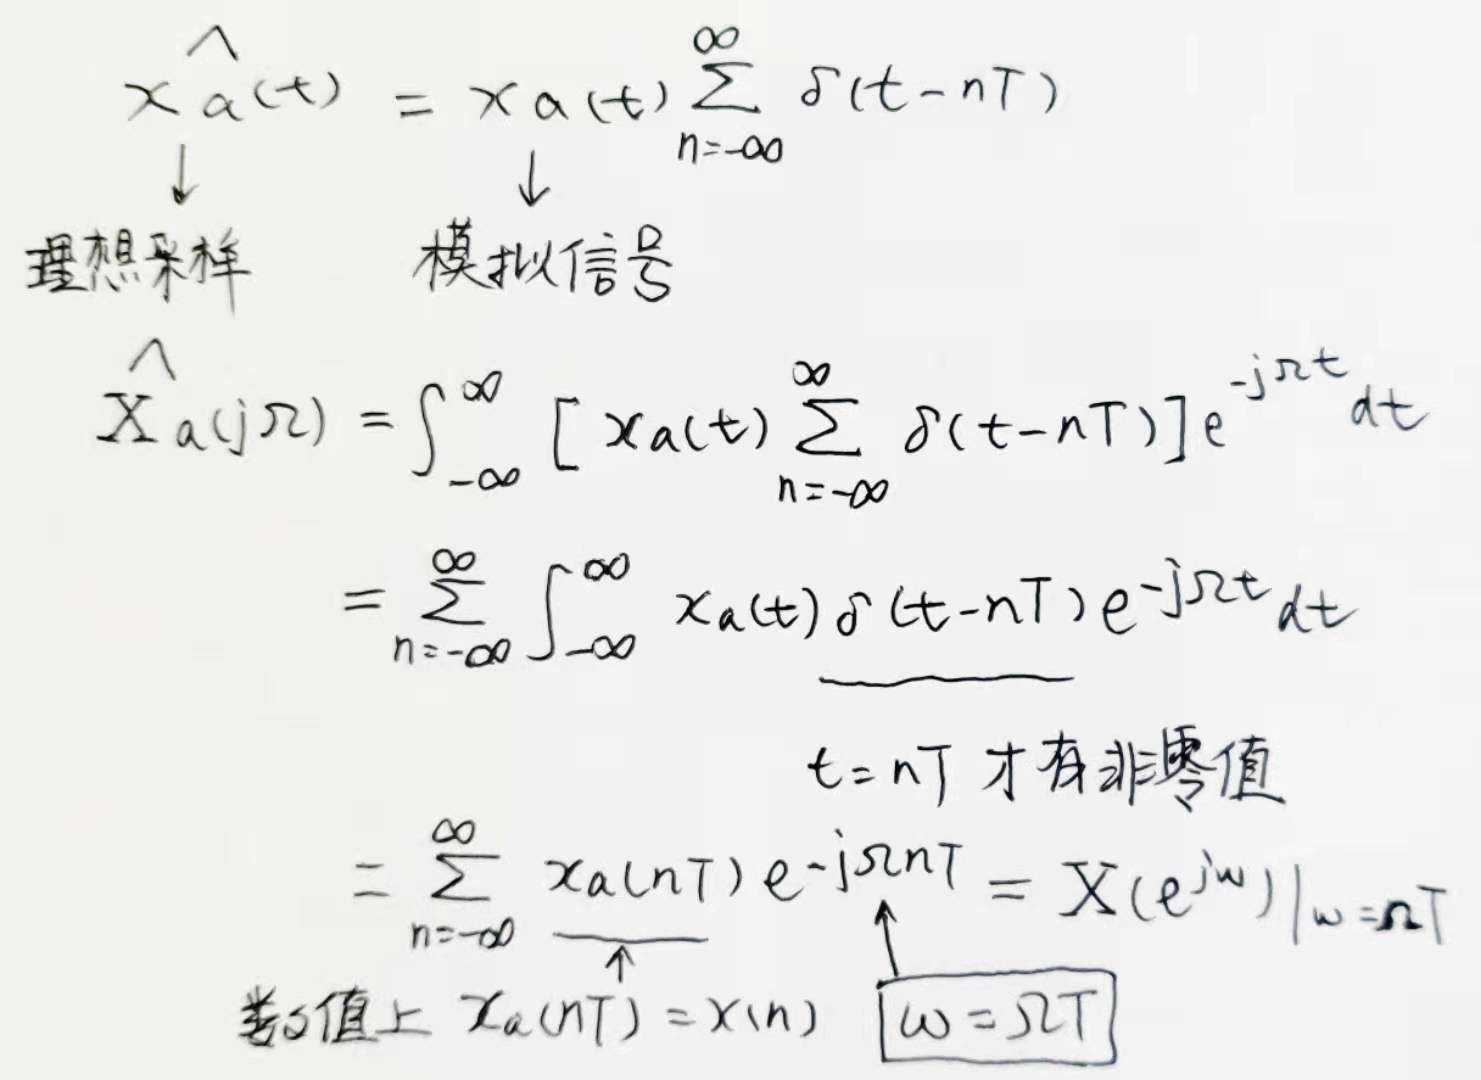 x̂a(t) = xa(t) ∑_{n=-∞}^{∞} δ(t-nT)
↓ ↓
理想采样 模拟信号
X̂a(jΩ) = ∫_{-∞}^{∞} [xa(t) ∑_{n=-∞}^{∞} δ(t-nT)] e^{-jΩt} dt
= ∑_{n=-∞}^{∞} ∫_{-∞}^{∞} xa(t) δ(t-nT) e^{-jΩt} dt
t=nT 才有非零值
= ∑_{n=-∞}^{∞} xa(nT) e^{-jΩnT} = X(e^{jω})|_{ω=ΩT}
数值上 xa(nT) = x(n) ω=ΩT